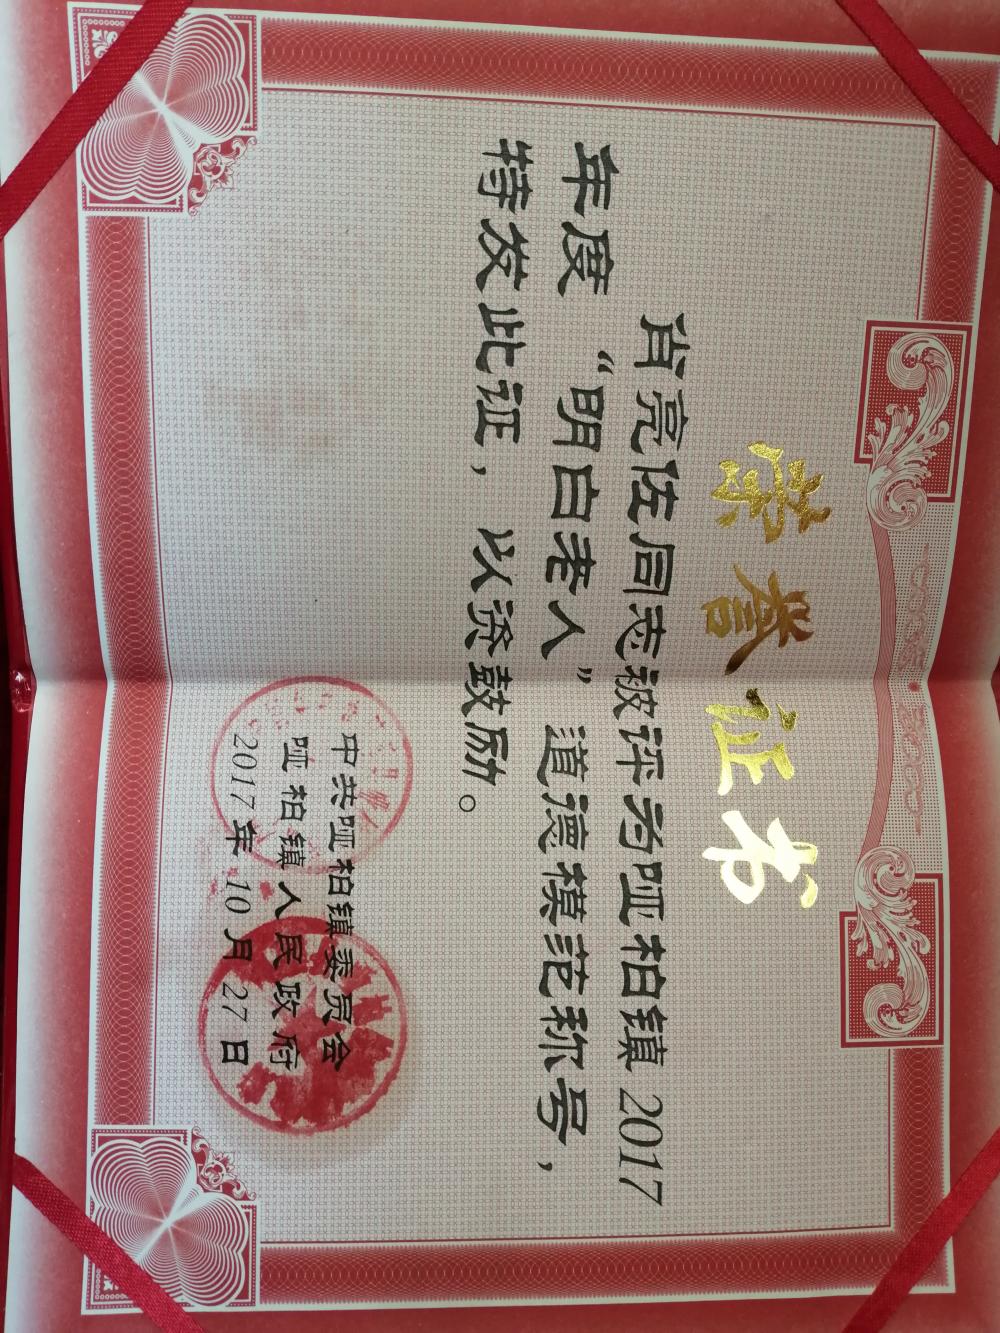 荣誉证书
肖亮伍同志被评为哑柏镇 2017
年度“明白老人”道德模范称号，
特发此证，以资鼓励。
中共哑柏镇委员会
哑柏镇人民政府
2017年10月27日